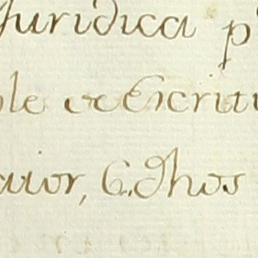 Juridica p
ble es Escritu
avor, C. dhos